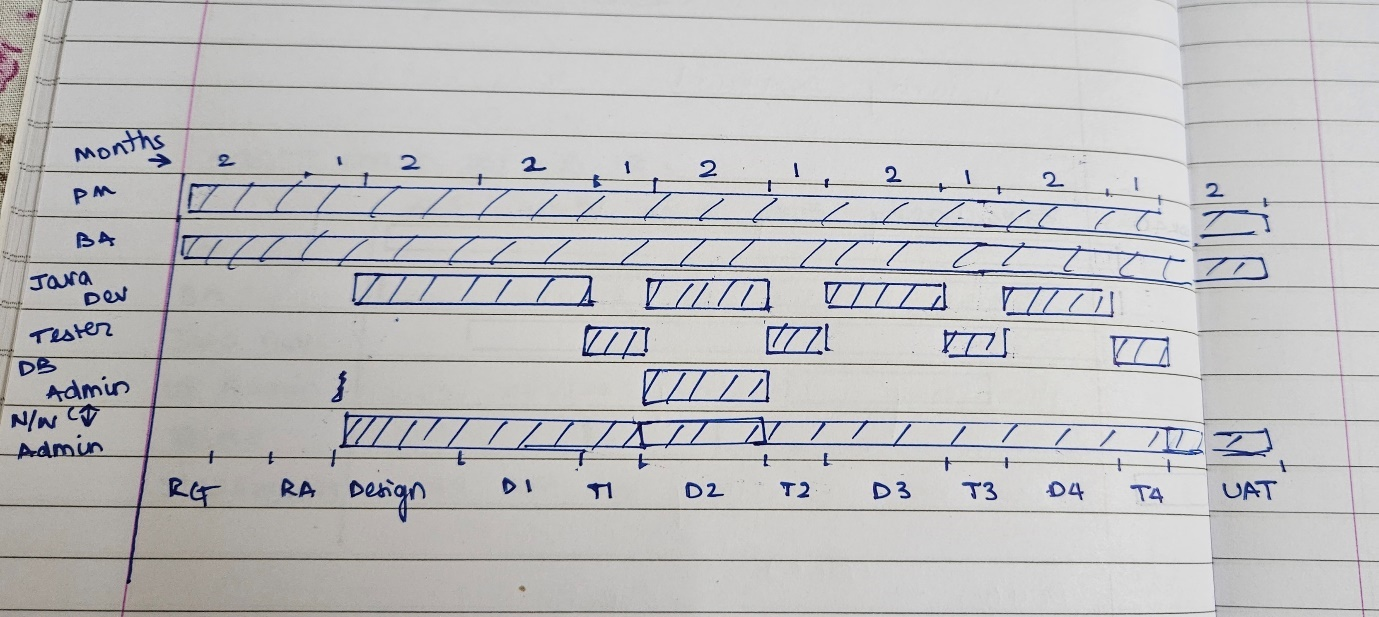 months →
2 1 2 2 1 2 1 2 1 2 1 2
PM
BA
Java
Dev
Tester
DB
Admin
N/W
Admin
RG RA Design D1 T1 D2 T2 D3 T3 D4 T4 UAT